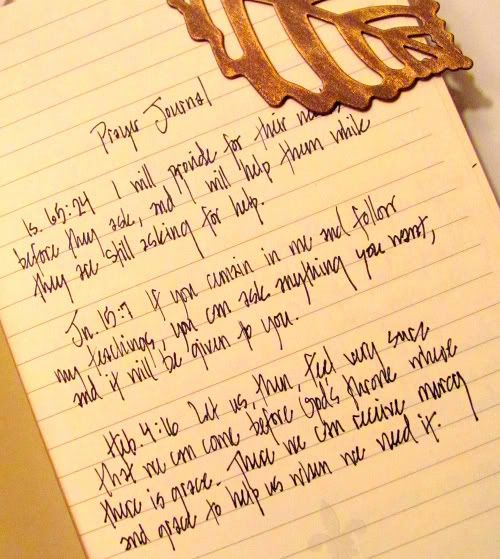 Prayer Journal
Is. 65:24 I will provide for their
before they ask, and I will help them while
they are still asking for help.
Jn. 15:7 If you remain in me and follow
my teachings, you can ask anything you want,
and it will be given to you.
Heb. 4:16 Let us, then, feel very sure
that we can come before God's throne where
there is grace. There we can receive mercy
and grace to help us when we need it.